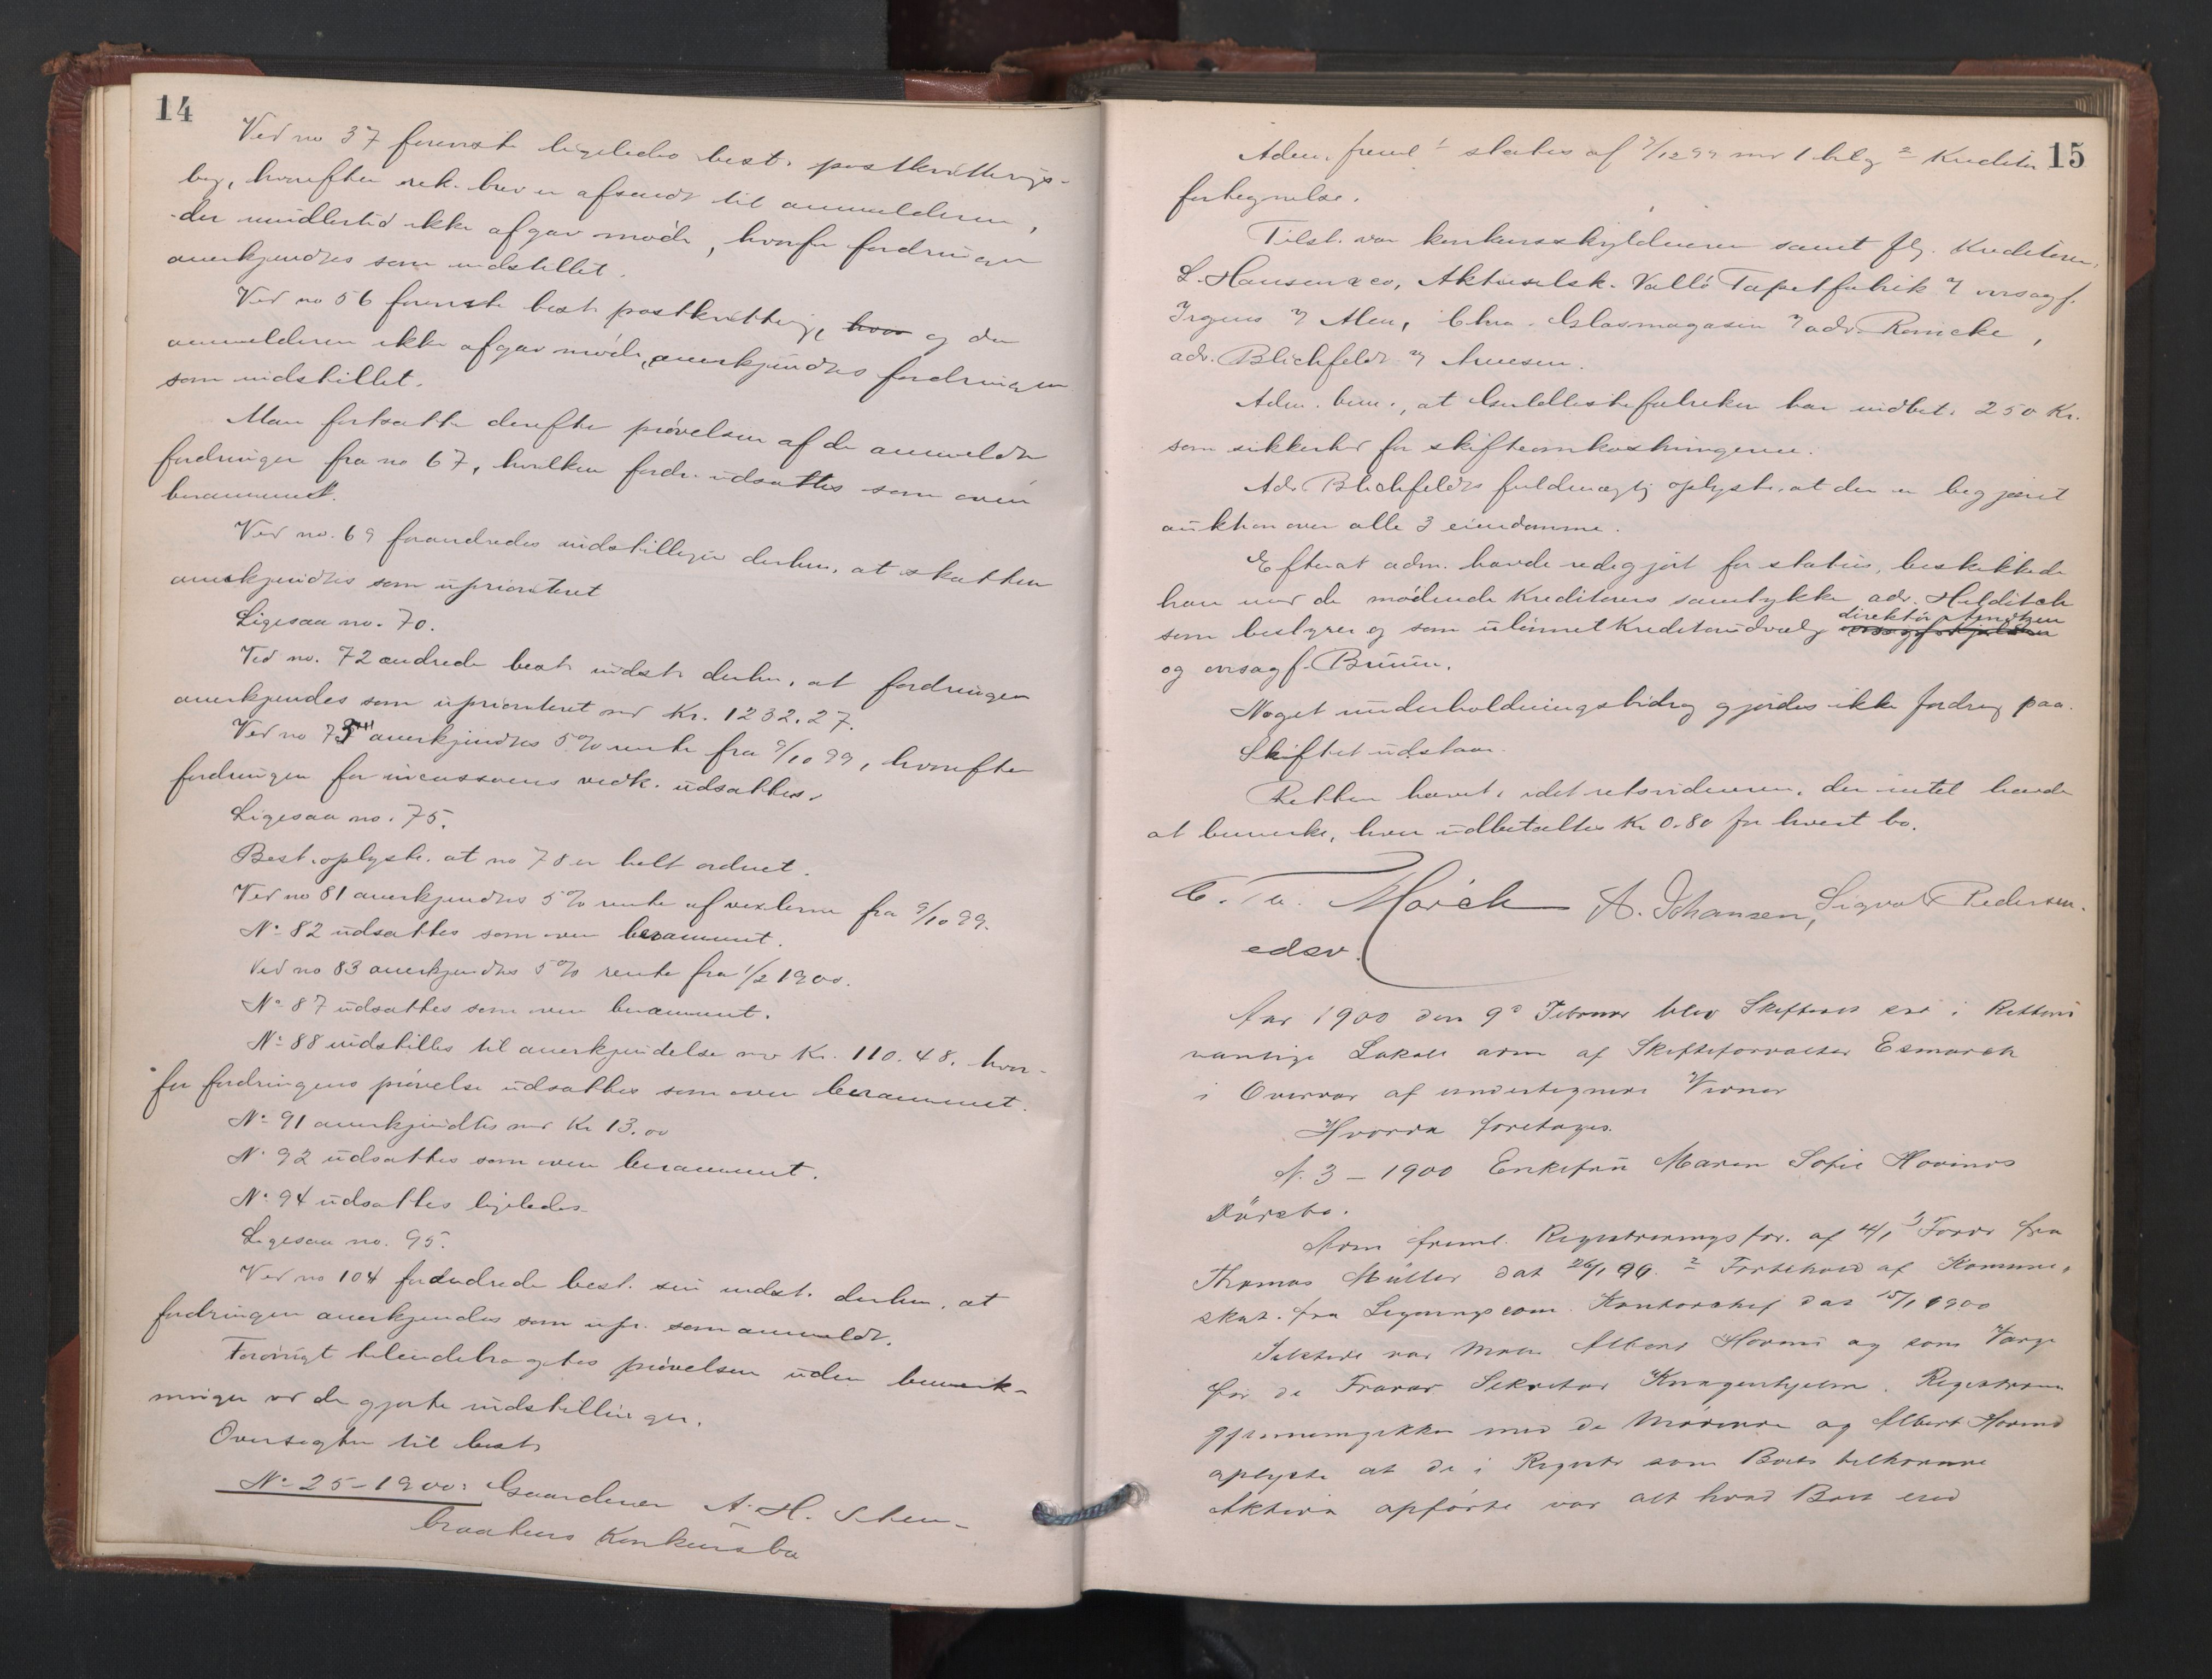 14
Ved no 37 foreviste ligeledes best. postkvitterings-
bog, hvorefter rek. brev er afsendt til anmelderen,
der imidlertid ikke afgav møde, hvorfor fordringen
anerkjendtes som indstillet.
Ved no 56 foreviste best. postkvittering, hvor og da
anmelderen ikke afgav møde, anerkjendtes fordringen
som indstillet.
Man fortsatte derefter prøvelsen af de anmeldte
fordringer fra no 67, hvilken fordr. udsattes som oven
berammet.
Ved no. 69 forandredes indstillingen derhen, at skatten
anerkjendtes som uprioriteret
Ligesaa no. 70.
Ved no. 72 ændrede best. indst. derhen, at fordringen
anerkjendes som uprioriteret med Kr. 1232.27.
Ved no 73 anerkjendtes 5% rente fra 9/10 99, hvorefter
fordringen for incassoens vedk. udsattes.
Ligesaa no. 75.
Best. oplyste, at no 78 er helt ordnet.
Ved no 81 anerkjendtes 5% rente af vexlerne fra 9/10 99.
No 82 udsattes som oven berammet.
Ved no 83 anerkjendtes 5% rente fra 1/2 1900.
No 87 udsattes som oven berammet.
No 88 indstilles til anerkjendelse med Kr. 110.48, hvor-
for fordringens prøvelse udsattes som oven berammet.
No 91 anerkjendtes med Kr 13.00
No 92 udsattes som oven berammet.
No 94 udsattes ligeledes
Ligesaa no. 95.
Ved no 104 forandrede best. sin indst. derhen, at
fordringen anerkjendes som upr. som anmeldt.
Forøvrigt tilendebragtes prøvelsen uden bemærk-
ninger ved de gjorte indstillinger.
Oversigten til best.
No 25-1900: Gaardeier A. H. Sten-
braatens Konkursbo
15
Adm. freml 1 status af 7/12 99 med 1 bilag 2 Kreditor
fortegnelse.
Tilst. var konkursskyldneren samt flg. Kreditorer:
L. Hansen & co, Aktieselsk. Vallø Tapetfabrik v/ ovrsagf.
Irgens v/ Alm, Chra. Glasmagasin v/ adv. Reincke,
adv. Blichfeldt v/ Arnesen.
Adm. bem., at Guldlistefabriken har indbet. 250 Kr.
som sikkerhed for skifteomkostningerne.
Adv. Blichfeldts fuldmægtig oplyste, at der er begjæret
auktion over alle 3 eiendomme.
Efterat adm. havde redegjort for status, beskikkede
han med de mødende Kreditorers samtykke adv. Holditch
direktør
som bestyrer og som ulønnet Kreditorudvalg
og ovrsagf. Bruun.
Noget underholdningsbidrag gjordes ikke fordring paa.
Skiftet udstaar.
Retten hævet, idet retsvidnerne, der intet havde
at bemærke, hver udbetaltes Kr 0.80 for hvert bo.
C. Tu. Mørch A. Johansen, Sigvald Pedersen.
edsv.
Aar 1900 den 9de Februar blev Skifteret sat i Rettens
vanlige Lokale adm af Skifteforvalter Esmarch
i Overvær af undertegnede Vidner
Hvorda foretoges.
N. 3 – 1900 Enkefru Maren Sofie Hovinds
Dødsbo.
Adm freml. Registreringsfor. af 4/1 1 Fordr fra
Thomas Müller dat 26/1 99. 2 Forbehold af Kommune-
skat. fra Ligningscom. Kontorchef dat 15/1 1900
Tilstede var Mal. Albert Hovind og som Værge
for de Fravær Sekretær Knagenhjelm. Registreren
gjennemgikkes med de Mødende og Albert Hovind
oplyste at de i Registr som Boets tilhørende
Aktiva opførte var alt hvad Boet eied